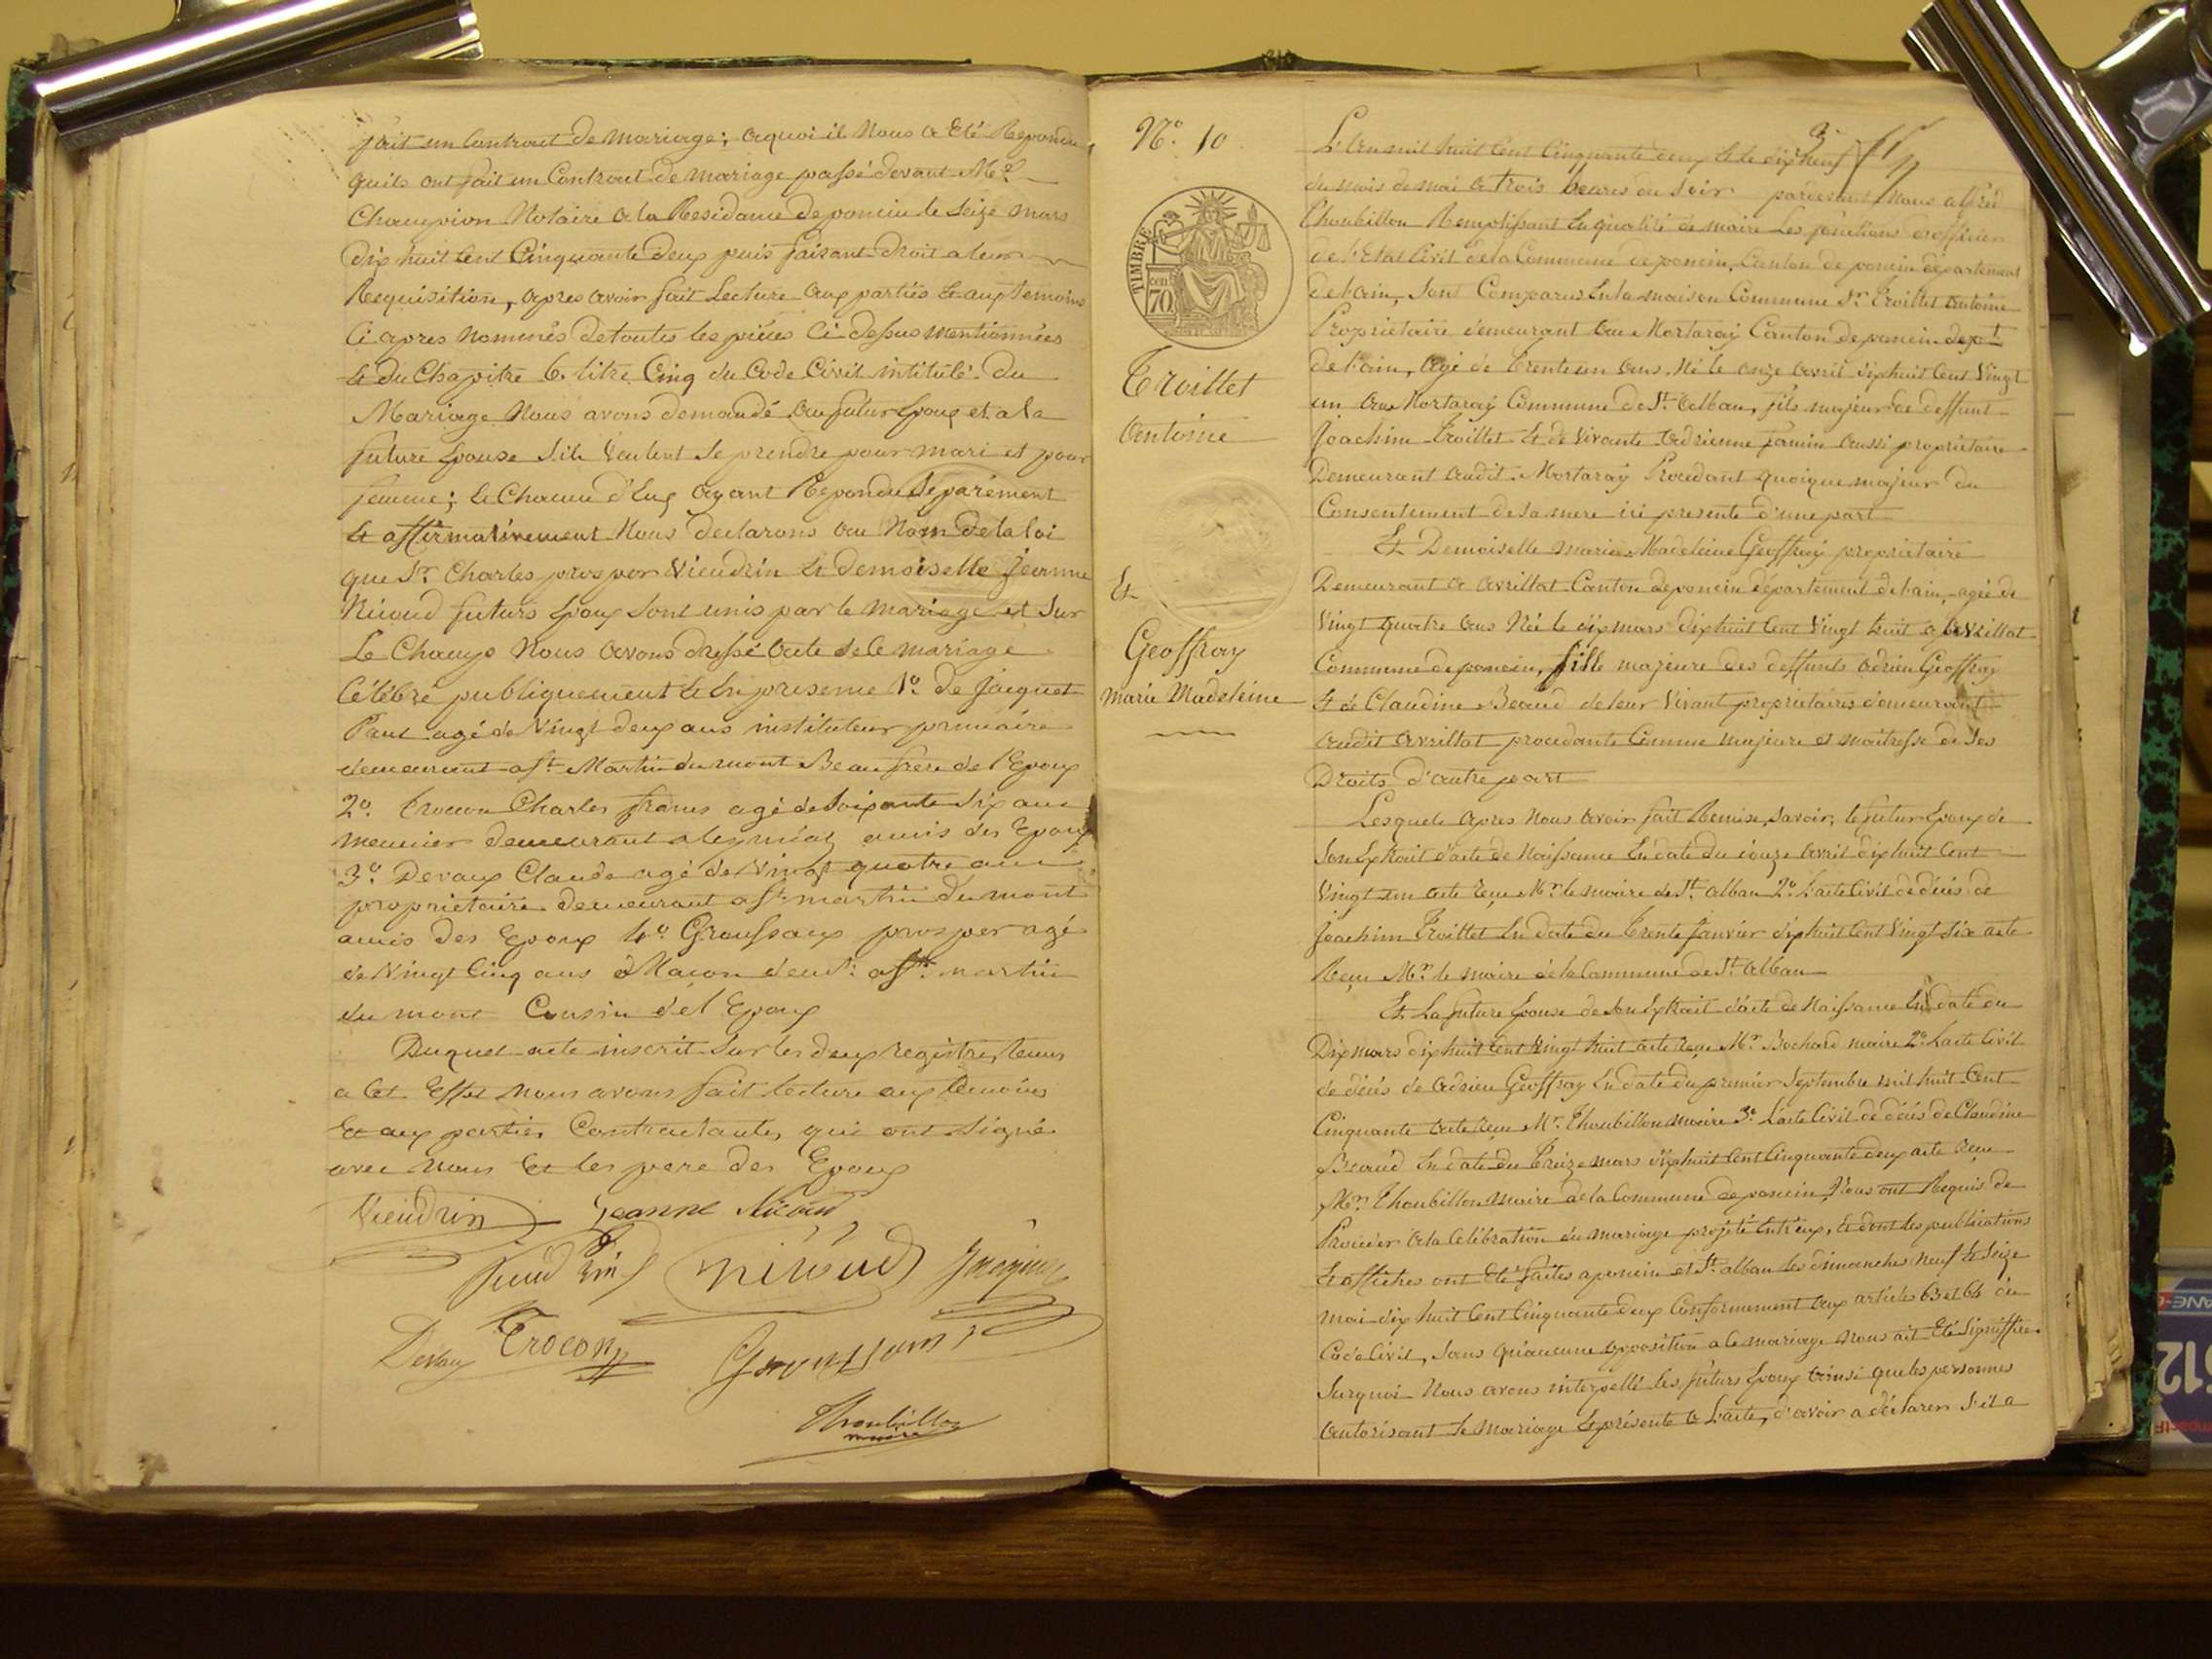 fait un Contrat de mariage; aquoi il Nous a Eté Repondu
quils ont fait un Contrat de mariage passé devant Me
Champion Notaire a la Residance de poncin le Seize mars
dix huit Cent Cinquante deux puis faisant droit a leur
Requisition, apres avoir fait Lecture aux parties et aux temoins
Ci apres nommés de toutes les pièces Ci dessus mentionnées
et du Chapitre 6. titre Cinq du Code Civil intitulé du
Mariage Nous avons demandé au futur Epoux et a la
future Epouse S'ils Veulent Se prendre pour mari et pour
femme; et Chacun d'Eux ayant Repondu Séparément
et affirmativement Nous declarons au Nom de la loi
que Sr Charles prosper Vieudrin et demoiselle Jeanne
Niéoud futurs Epoux Sont unis par le mariage et Sur
Le Champs Nous avons dressé Acte de Ce mariage
Célébré publiquement et En presense 1º. de Jacquet
Paul agé de Vingt deux ans instituteur primaire
demeurant a St Martin du mont Beau frere de l'Epoux
2º. Trocon Charles frans agé de Soixante Six ans
meunier demeurant a leymiat amis des Epoux
3º. Devaux Claude agé de Vingt quatre ans
propriétaire demeurant a St martin du mont
amis des Epoux 4º. Groussaux prosper agé
de Vingt Cinq ans Macon demt: a St. martin
du mont Cousin de l'Epoux
Duquel acte inscrit Sur les deux registres tenus
a Cet Effet Nous avons fait lecture aux temoins
Et aux parties Contractantes qui ont Signé
avec Nous Et les pere des Epoux
Vieudrin Jeanne Niéoud
Niéoud Jacquet
Devaux Trocon
Thoubillon
maire
Nº. 10
TIMBRE
70
Troillet
Antoine
Et
Geoffray
Marie Madeleine
L'an mil huit Cent Cinquante deux Et le dix Neuf
du mois de mai a trois heures du Soir pardevant Nous alfred
Thoubillon Remplissant En qualité de maire Les fonctions d'officier
de l'Etat Civil de la Commune de poncin, Canton de poncin département
de l'ain, Sont Comparus En la maison Commune Sr. Troillet Antoine
Proprietaire demeurant au Mortarey Canton de poncin dept
de l'ain, Agé de trente un ans, Né le onze avril dixhuit Cent Vingt
un au Mortarey Commune de St. Alban, fils majeur de deffunt
Joachim Troillet Et de Vivante Adrienne Jamin aussi propriétaire
Demeurant audit Mortarey Procédant quoique majeur du
Consentement de Sa mere ici presente d'une part
Et Demoiselle marie Madeleine Geoffray propriétaire
Demeurant a Avrillat Canton de poncin département de l'ain, agée de
Vingt quatre ans Née le dix mars dixhuit Cent Vingt huit a Avrillat
Commune de poncin, fille majeure des deffunts Adrien Geoffray
Et de Claudine Beaud de leur Vivant proprietaires demeurant
audit Avrillat procedante Comme majeure et maîtresse de Ses
Droits d'autre part
Lesquels Apres Nous avoir fait Remise, Savoir, le futur Epoux de
Son Extrait d'acte de Naissance En date du onze Avril dix huit Cent
Vingt un acte Reçu Mr. le maire de St. Alban 2º. L'acte Civil de décès de
Joachim Troillet En date du Trente Janvier dixhuit Cent Vingt Six acte
Reçu Mr. le maire de la Commune de St. Alban
Et La future Epouse de Son Extrait d'acte de Naissance En date du
Dix mars dixhuit Cent Vingt huit acte Reçu Mr. Bochard maire 2º. L'acte Civil
de décès de Adrien Geoffray En date du premier Septembre mil huit Cent
Cinquante acte Reçu Mr. Thoubillon maire 3º. L'acte Civil de décès de Claudine
Beaud En date du Treize mars dixhuit Cent Cinquante deux acte Reçu
Mr. Thoubillon maire de la Commune de poncin Nous ont Requis de
Proceder a la Célébration du mariage projeté Entr'eux, Et dont les publications
et affiches ont Eté faites a poncin et St. alban les dimanches Neuf Et Seize
mai dix huit Cent Cinquante deux Conformement aux articles 63 et 64 du
Code Civil, Sans qu'aucune opposition a Ce mariage Nous ait Eté Signiffiée
Surquoi Nous avons interpellé les futurs Epoux Ainsi que les personnes
autorisant le mariage Et présente a L'acte, d'avoir a déclarer S'il a